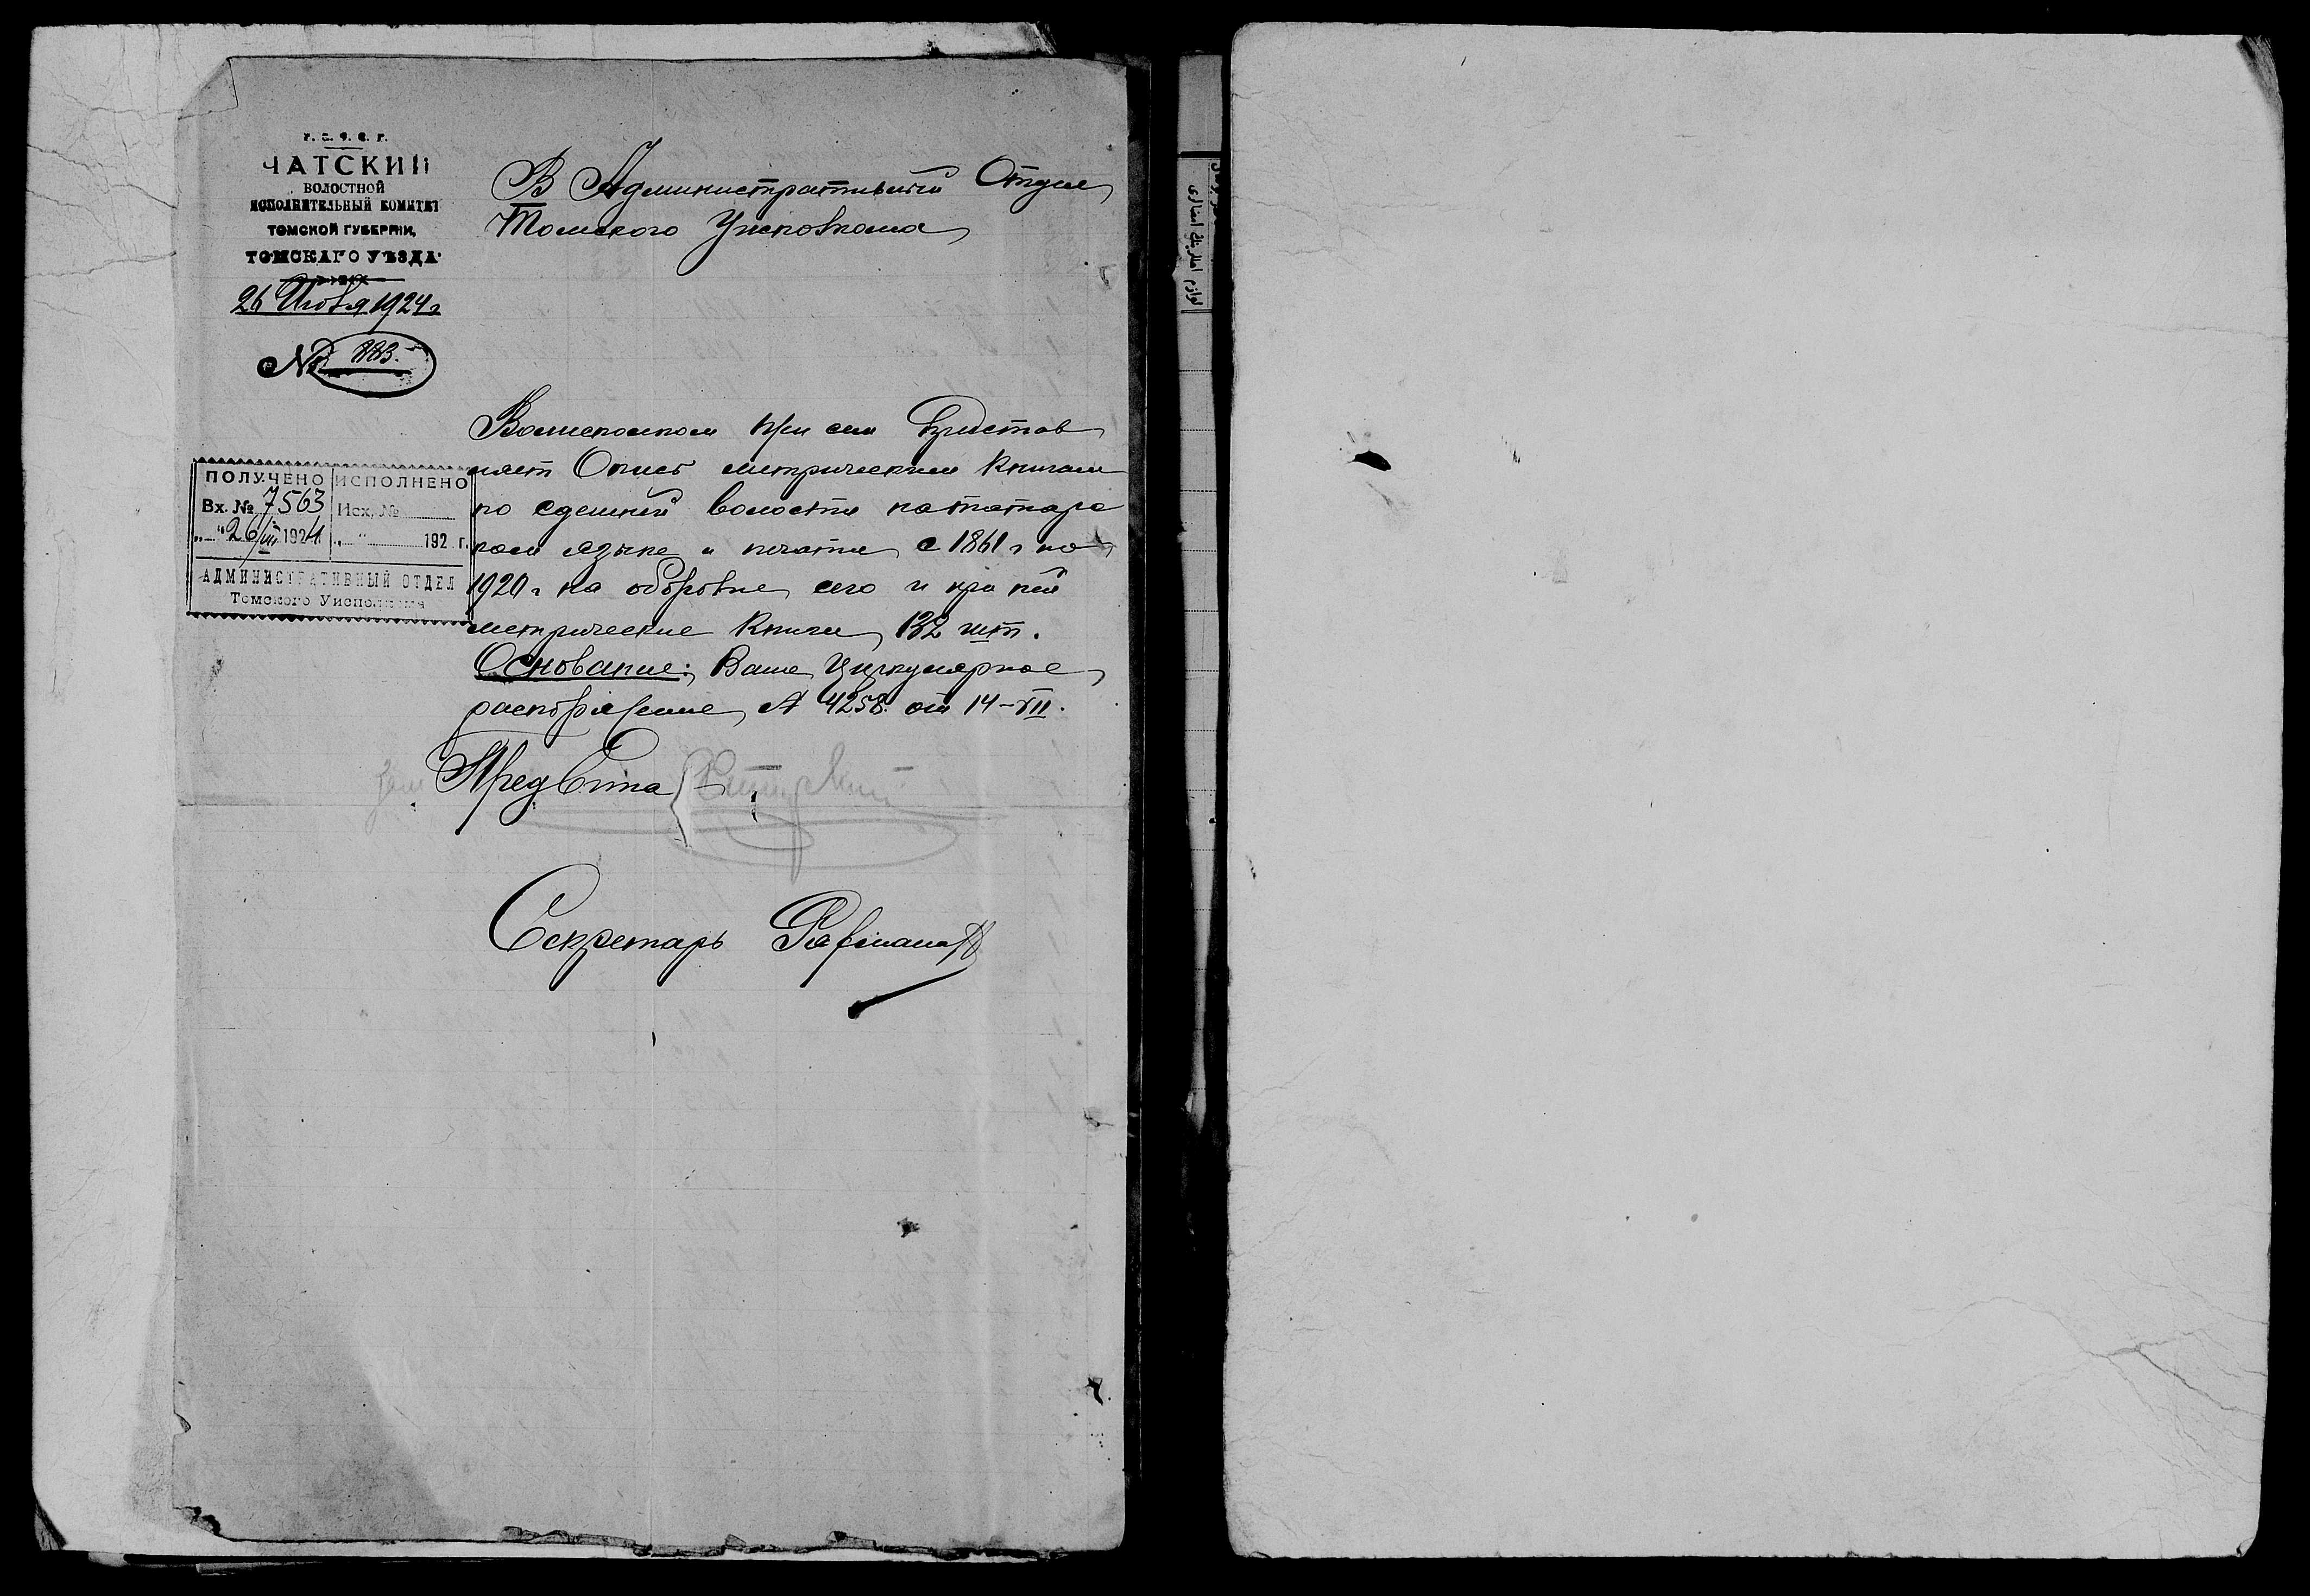 Р. С. Ф. С. Р.
ЧАТСКИЙ
ВОЛОСТНОЙ
ИСПОЛНИТЕЛЬНЫЙ КОМИТЕТ
ТОМСКОЙ ГУБЕРНИИ,
ТОМСКАГО УѢЗДА
26 Июля 1924 г
№ 883.
В Административный Отдел
Томского Уисполкома
Волисполком при сем представ
ляет Опись метрическим книгам
по сдешней волости на татарс
ком языке и печати с 1861 г по
1920 г на обороте сего и при ней
метрические книги 132 шт.
Основание: Ваше циркулярное
распоряжение № 4258 от 14-VII.
ПОЛУЧЕНО ИСПОЛНЕНО
Вх. № 7563 Исх. №
„ " 26/VII 1924 г. „ " 192 г.
АДМИНИСТРАТИВНЫЙ ОТДЕЛ
Томского Уисполкома
Зам Предвика
Секретарь
لوازم امللرينڭ امضالرى